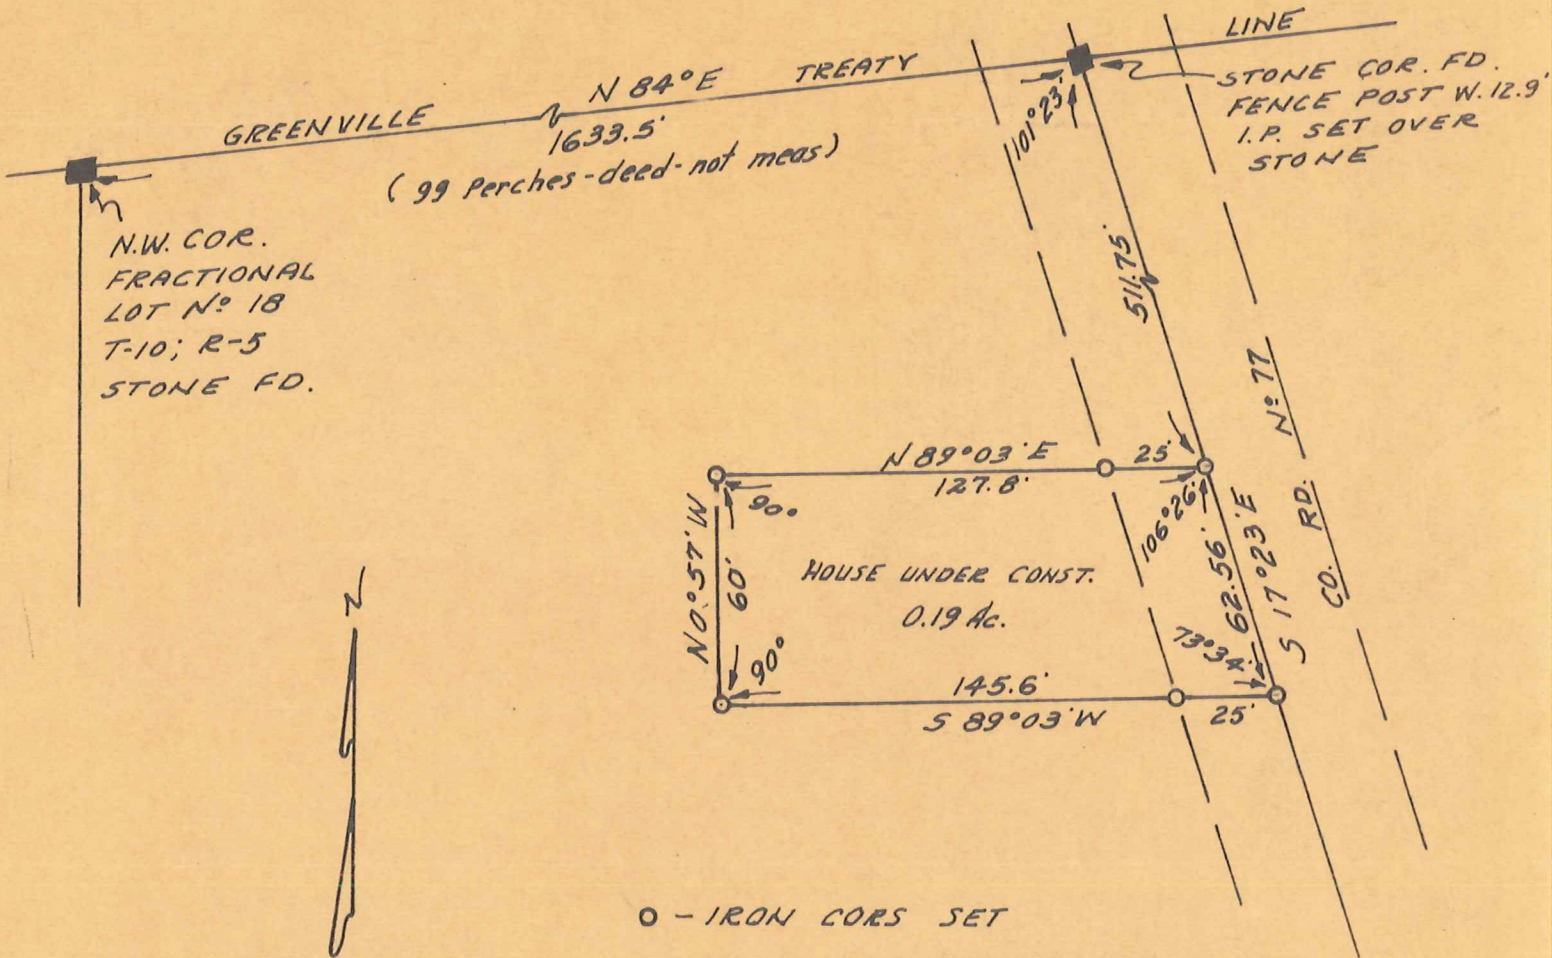 GREENVILLE N 84° E TREATY LINE
1633.5'
( 99 Perches - deed - not meas )
STONE COR. FD.
FENCE POST W. 12.9'
I.P. SET OVER
STONE
101°23'
N.W. COR.
FRACTIONAL
LOT Nº 18
T-10; R-5
STONE FD.
511.75'
CO. RD. Nº 77
N 89°03' E
127.8'
25'
90°
106°26'
N 0°57' W
60'
HOUSE UNDER CONST.
0.19 Ac.
62.56'
S 17°23' E
73°34'
90°
145.6'
S 89°03' W
25'
O - IRON CORS SET